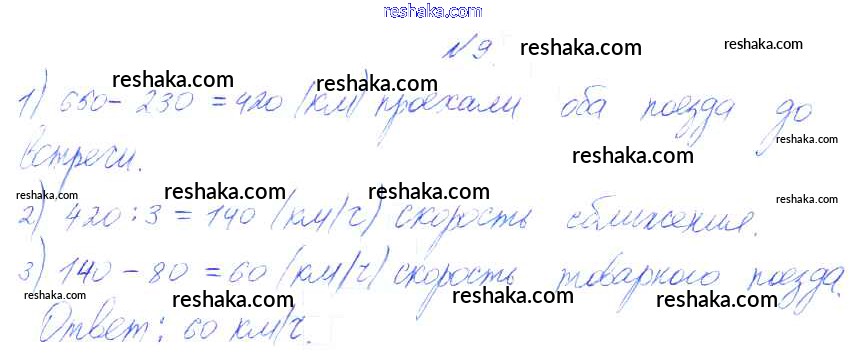 reshaka.com
№9. reshaka.com
reshaka.com reshaka.com
1) 650 - 230 = 420 (км) проехали оба поезда до
reshaka.com
встречи. reshaka.com
reshaka.com reshaka.com reshaka.com reshaka.com
2) 420 : 3 = 140 (км/ч) скорость сближения.
3) 140 - 80 = 60 (км/ч) скорость товарного поезда.
reshaka.com reshaka.com reshaka.com reshaka.com
Ответ: 60 км/ч.